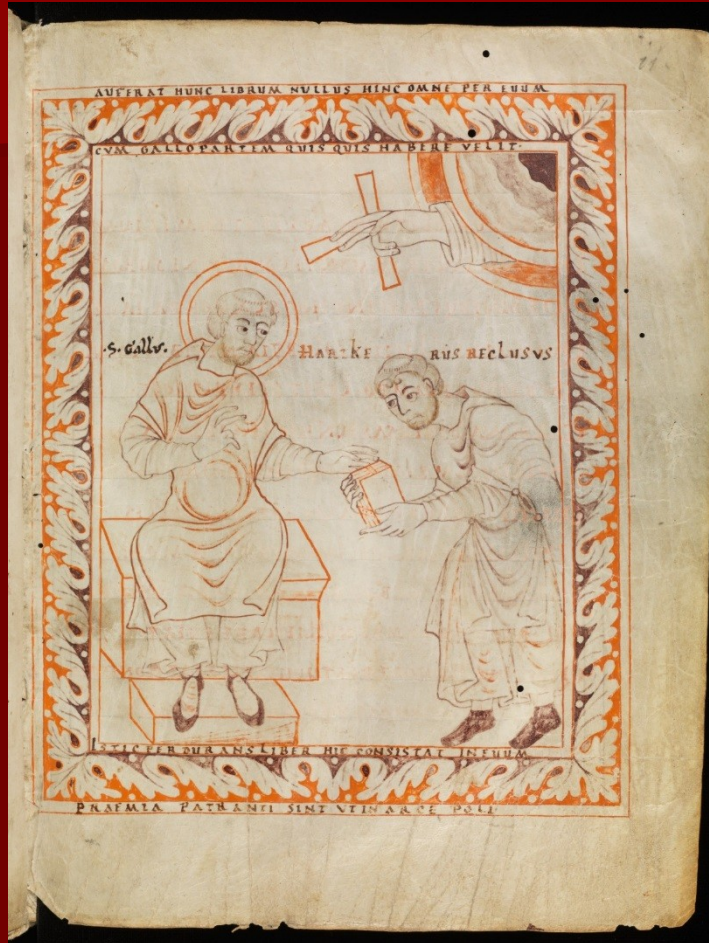 AUFERAT HUNC LIBRUM NULLUS HINC OMNE PER EUUM
CVM GALLO PARTEM QUIS QUIS HABERE VELIT·
·S· Gallus·
HARTKE RUS RECLUSVS
ISTIC PERDURANS LIBER HIC CONSISTAT IN EUUM
PRAEMIA PATRANTI SINT VT IN ARCE POLI
11